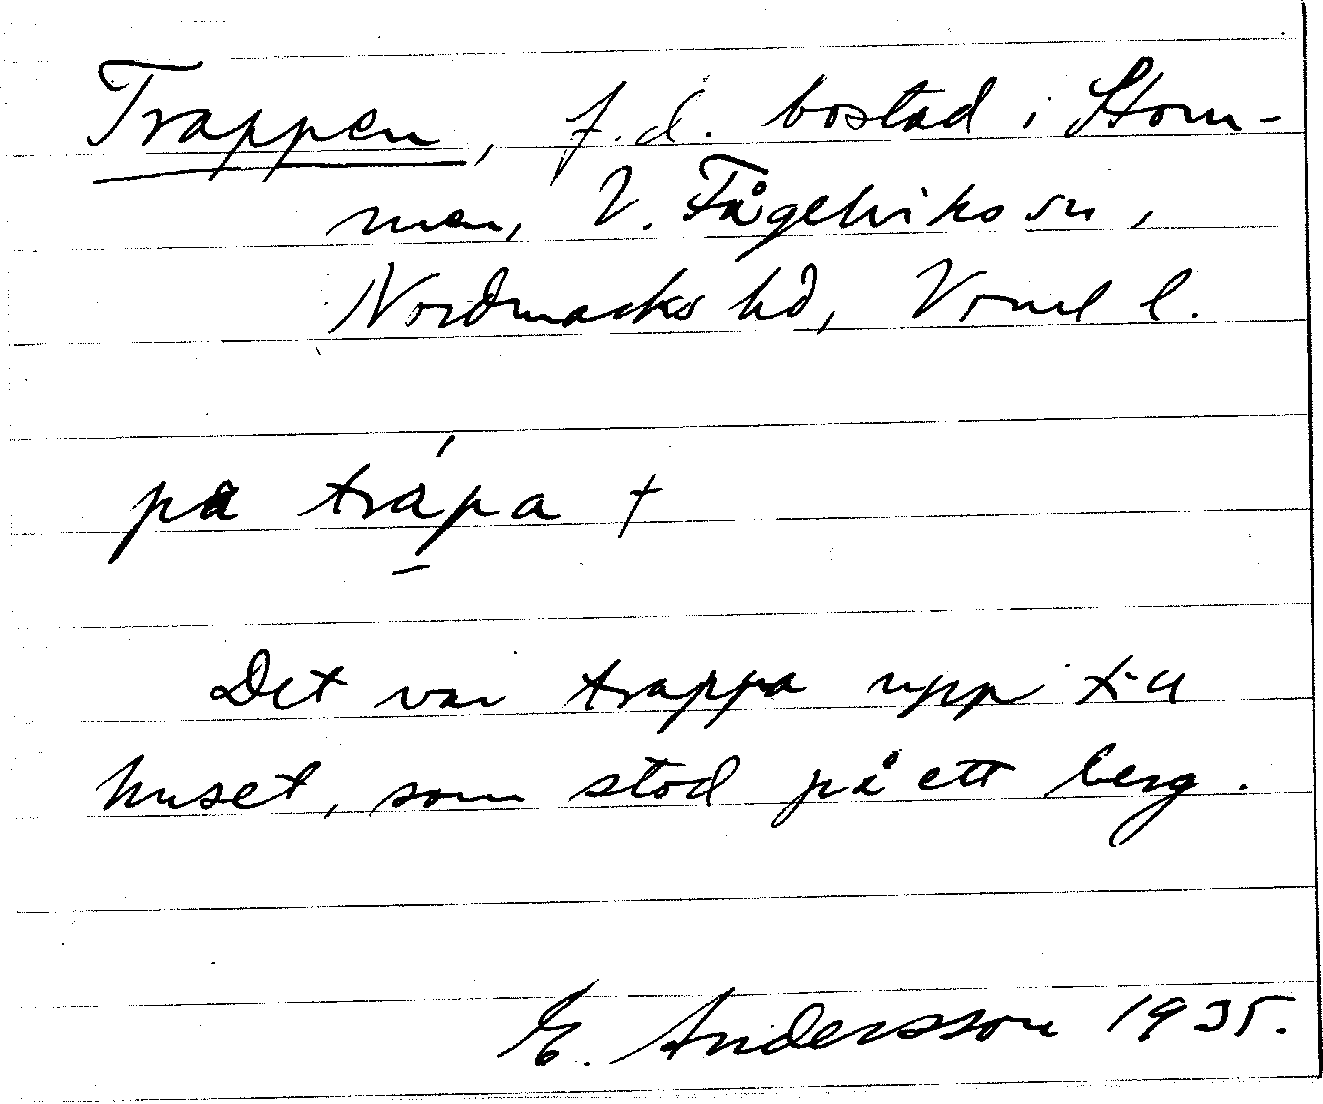 Trappen, f.d. bostad i Stom-
men, V. Fågelviks sn,
Nordmarks hd, Vrml l.
på trápa +
Det var trappa upp till
huset, som stod på ett berg.
E. Andersson 1935.